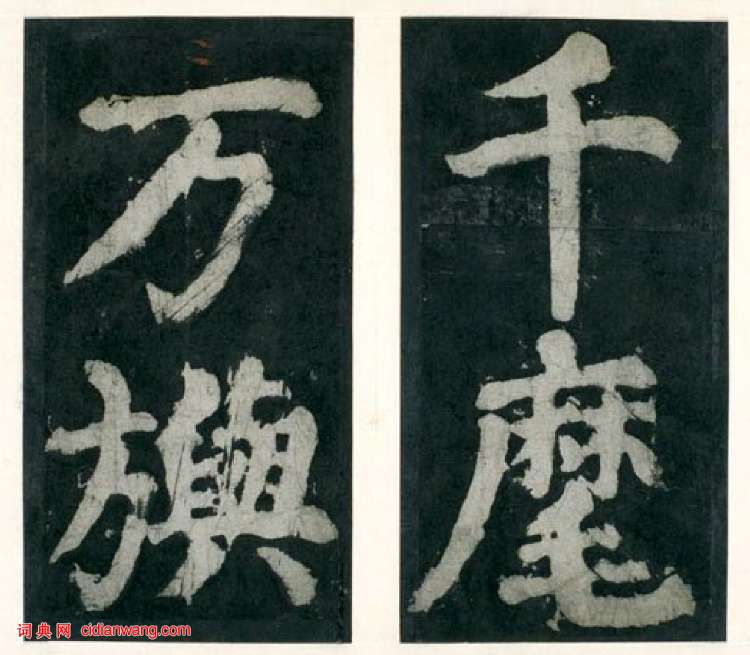 千麾
万旟
词典网 cidianwang.com